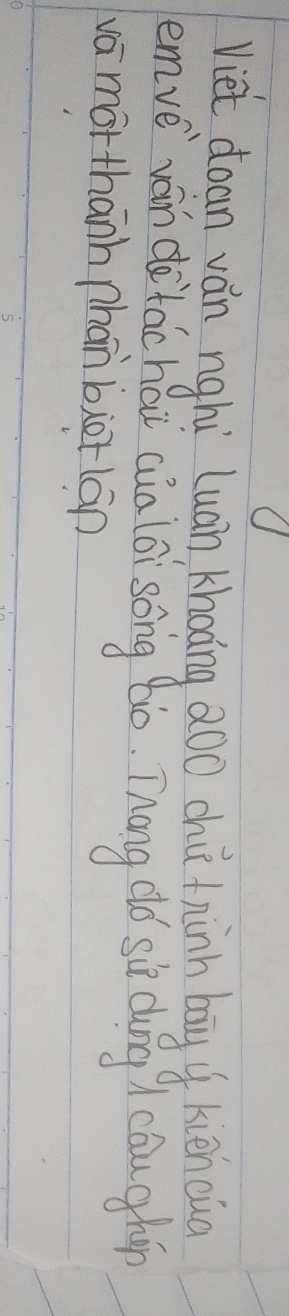 Viết đoạn văn nghị luận khoảng 200 chữ trình bày ý kiến của
em về vấn đề tác hại của lối sống ảo. Trong đó sử dụng 1 câu ghép
và một thành phần biệt lập